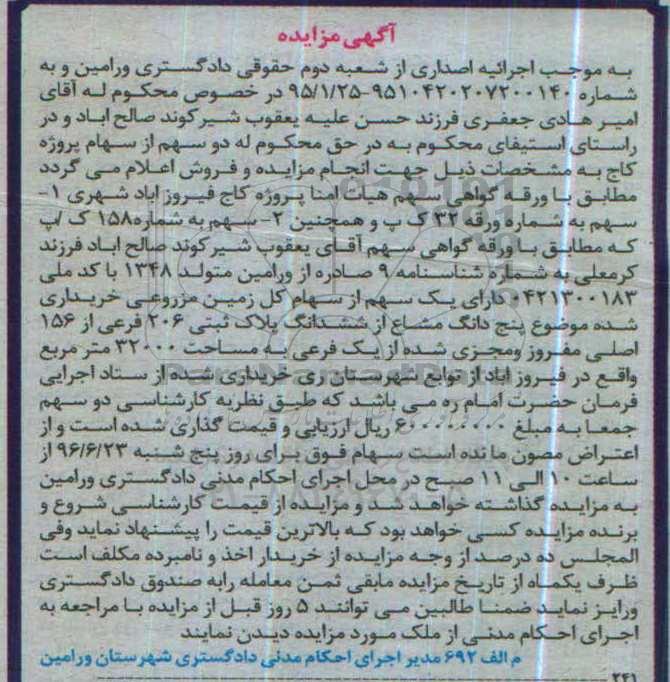 آگهی مزایده
به موجب اجرائیه اصداری از شعبه دوم حقوقی دادگستری ورامین و به
شماره ۹۵۱۰۴۲۰۲۰۷۲۰۰۱۴۰-۹۵/۱/۲۵ در خصوص محکوم له آقای
امیر هادی جعفری فرزند حسن علیه یعقوب شیرکوند صالح اباد و در
راستای استیفای محکوم به در حق محکوم له دو سهم از سهام پروژه
کاج به مشخصات ذیل جهت انجام مزایده و فروش اعلام می گردد
مطابق با ورقه گواهی سهم هیات امنا پروژه کاج فیروز اباد شهری ۱-
سهم به شماره ورقه ۳۲ ک پ و همچنین ۲- سهم به شماره۱۵۸ ک /پ
که مطابق با ورقه گواهی سهم آقای یعقوب شیرکوند صالح اباد فرزند
کرمعلی به شماره شناسنامه ۹ صادره از ورامین متولد ۱۳۴۸ با کد ملی
۰۴۲۱۳۰۰۱۸۳ دارای یک سهم از سهام کل زمین مزروعی خریداری
شده موضوع پنج دانگ مشاع از ششدانگ پلاک ثبتی ۲۰۶ فرعی از ۱۵۶
اصلی مفروز ومجزی شده از یک فرعی به مساحت ۳۲۰۰۰ متر مربع
واقع در فیروز اباد از توابع شهرستان ری خریداری شده از ستاد اجرایی
فرمان حضرت امام ره می باشد که طبق نظریه کارشناسی دو سهم
جمعا به مبلغ ۶۰۰۰۰۰۰۰۰ ریال ارزیابی و قیمت گذاری شده است و از
اعتراض مصون مانده است سهام فوق برای روز پنج شنبه ۹۶/۶/۲۳ از
ساعت ۱۰ الی ۱۱ صبح در محل اجرای احکام مدنی دادگستری ورامین
به مزایده گذاشته خواهد شد و مزایده از قیمت کارشناسی شروع و
برنده مزایده کسی خواهد بود که بالاترین قیمت را پیشنهاد نماید وفی
المجلس ده درصد از وجه مزایده از خریدار اخذ و نامبرده مکلف است
ظرف یکماه از تاریخ مزایده مابقی ثمن معامله رابه صندوق دادگستری
ورایز نماید ضمنا طالبین می توانند ۵ روز قبل از مزایده با مراجعه به
اجرای احکام مدنی از ملک مورد مزایده دیدن نمایند
م الف ۶۹۲ مدیر اجرای احکام مدنی دادگستری شهرستان ورامین
۲۴۱